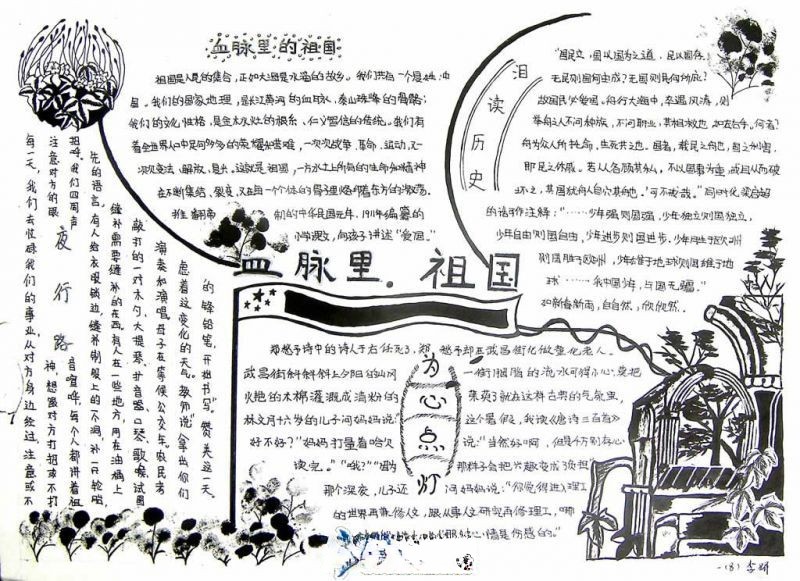 血脉里的祖国
祖国是人民的集合，正如大海是水滴的故乡。我们共有一个属姓:中
国。我们的国家地理，是长江黄河的血脉，泰山珠峰的骨骼；
我们的文化性格，是金木水火的根系、仁义智信的传统。我们有
着全世界人口中足可夸多的荣耀和苦难，一次次战争、革命、运动，又一
次次变法、解放、复出。这就是祖国，一方水土上所有的生命和精神
在不断集结、裂变，又在每一个个体的骨子里烙印着东方的激荡。
推翻帝制的中华民国元年，1911年编纂的
小学课文，向孩子讲述“爱国。”
泪读历史
“国民立，国以国为之道，民以国存，
无民则国何由成？无国则民何所庇？
故国民必爱国。舟行大海中，卒遇风涛，则
举舟之人不问种族，不问职业，其相救也，如左右手。何者？
舟为众人所托命，生死共之也。国者，载民之舟也，国之利害，
即民之休戚。若人各顾其私，不以国事为重，或且从而破
坏之，其国犹舟人自穴其舟也，可不哉哉。”同时代，梁启超
的诗作注解：“……少年强则国强，少年独立则国独立，
少年自由则国自由，少年进步则国进步，少年胜于欧洲
则国胜于欧洲，少年雄于地球则国雄于地
球……我中国少年，与国无疆。”
如新春新雨，自自然，欣欣然。
血脉里．祖国
夜行路
每一天，我们去忙碌我们的事业，从对方身边经过，注意或不
注意对方的眼神，想跟对方打招呼不打
招呼。我们四周声音喧哗，每个人都讲着祖
先的语言，有人给衣服锁边，缝补制服上的不洞，补一只轮胎，
缝补需要缝补的东西。有人在一些地方，用在油桶上
敲打的一对木勺、大提琴、扩音器、口琴、歌喉，试图
演奏和演唱。母子在等候公交车。农民考
虑着这变化的天气。教师说“拿出你们
的铅笔，开始书写”。赞美这一天。
为心点灯
郑愁予诗中的诗人于右任死了，郑愁予却在武昌街化做童化老人。
武昌街斜斜斜上夕阳的山冈一街胭脂的流水可得小心要把
火艳的木棉灌溉成清粉的茱萸就在这样古典的气氛里，
林文月十六岁的儿子问妈妈：这个暑假，我读《唐诗三百首》
好不好？”妈妈打量着哈欠说：“当然好啊，但是千万别存心
读完。”“哦？”“因为那样子会把兴趣变成了负担”
那个深夜，儿子还问妈妈说：“你觉得进入理工
的世界再兼修人文，跟从事人文研究再修理工，哪
情是伤感的。”
一（8）李妍